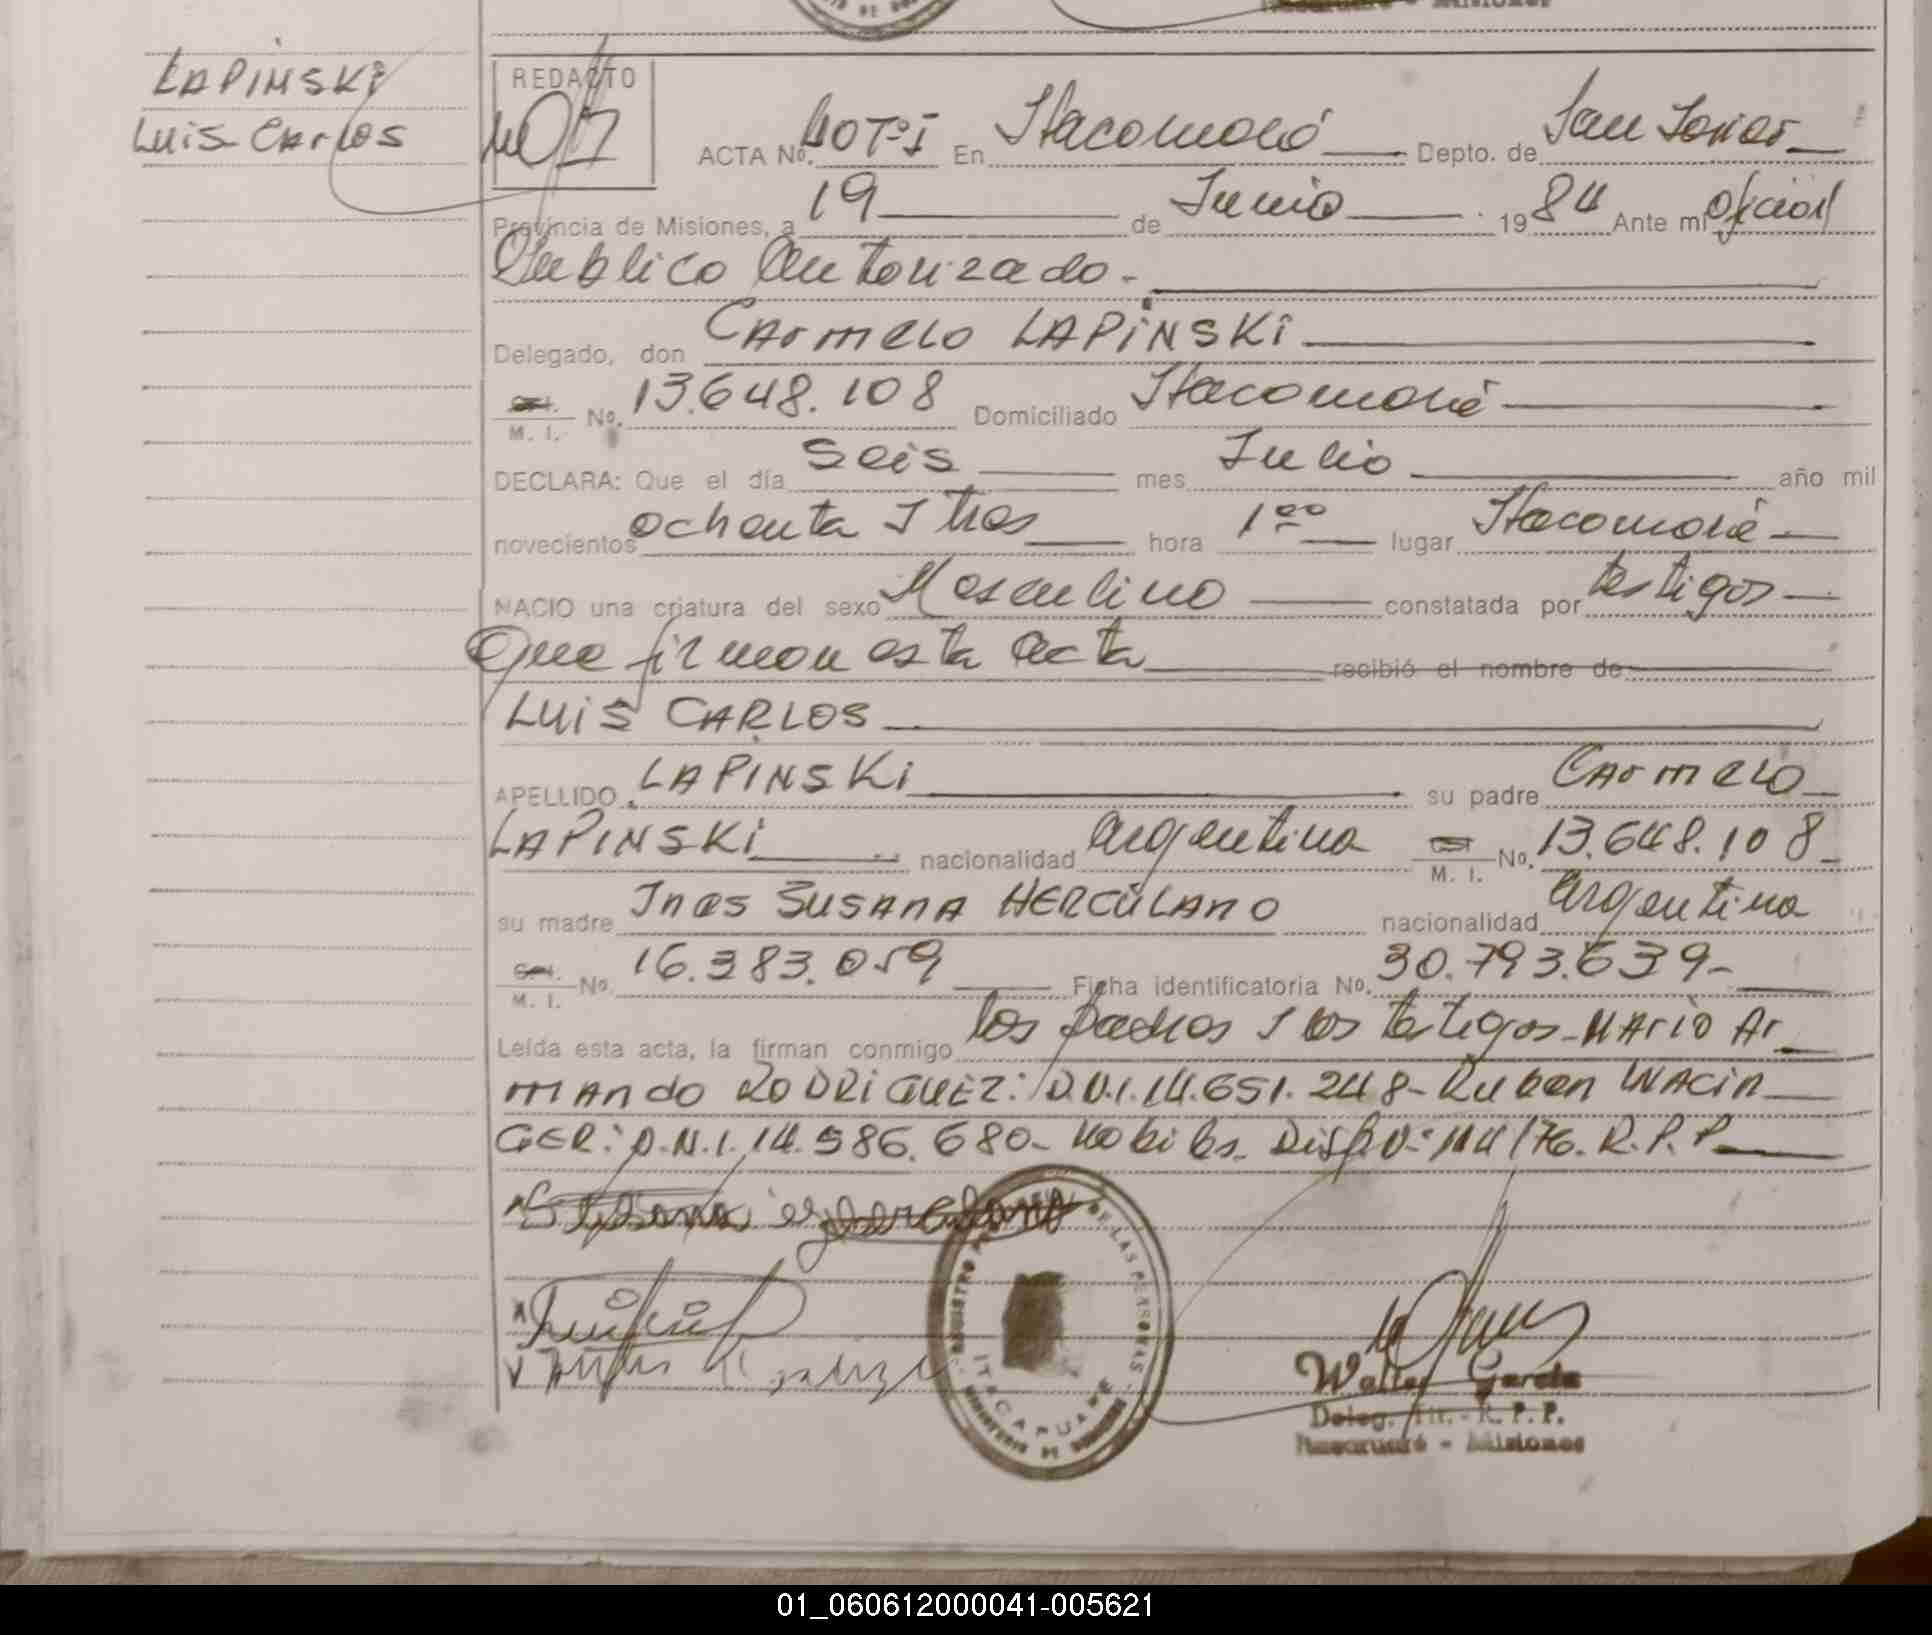 LAPINSKI
Luis Carlos
REDACTO
ACTA No. 40 Tº I En Itacaruaré Depto. de San Javier
Provincia de Misiones, a 19 de Junio 1984 Ante mi oficial
Publico Autorizado.-
Delegado, don Carmelo LAPINSKI
M. I. No. 13.648.108 Domiciliado Itacaruaré
DECLARA: Que el día Seis mes Julio año mil
novecientos ochenta y tres hora 1ºº lugar Itacaruaré
NACIO una criatura del sexo Masculino constatada por testigos
Que firman esta acta recibió el nombre de
LUIS CARLOS
APELLIDO LAPINSKI su padre Carmelo
LAPINSKI nacionalidad argentina M. I. No. 13.648.108
su madre Ines SUSANA HERCULANO nacionalidad argentina
M. I. No. 16.383.059 Ficha identificatoria No. 30.793.639-
Leída esta acta, la firman conmigo los padres y los testigos-MARIO Ar
mando RODRIGUEZ: D.N.I. 14.651.248- Ruben WACIN
GER: D.N.I. 14.986.680- Disp. Nº 114/76. R.P.P
DE LAS PERSONAS
ITACARUARE
Walter Garcia
Deleg. Tit. - R. P. P.
Itacaruaré - Misiones
01_060612000041-005621